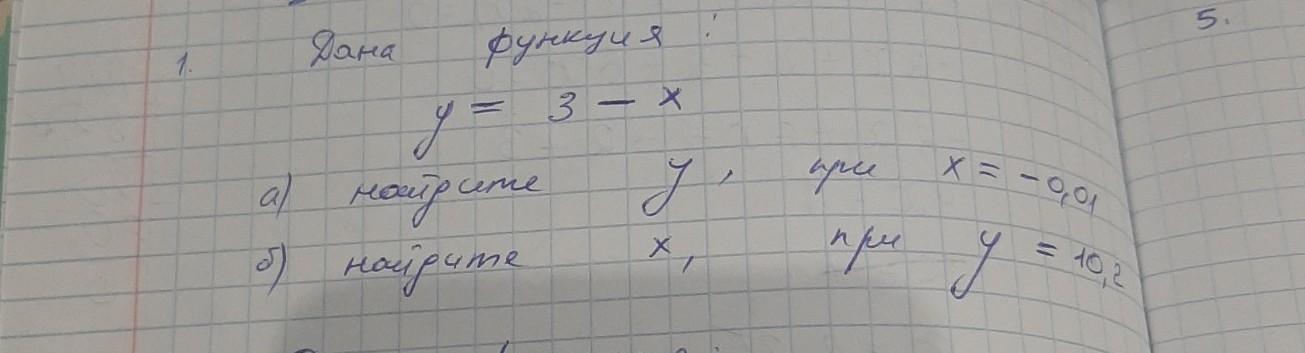 1. Дана функция:
y = 3 - x
а) найдите y, при x = -0,01
б) найдите x, при y = 10,2
5.